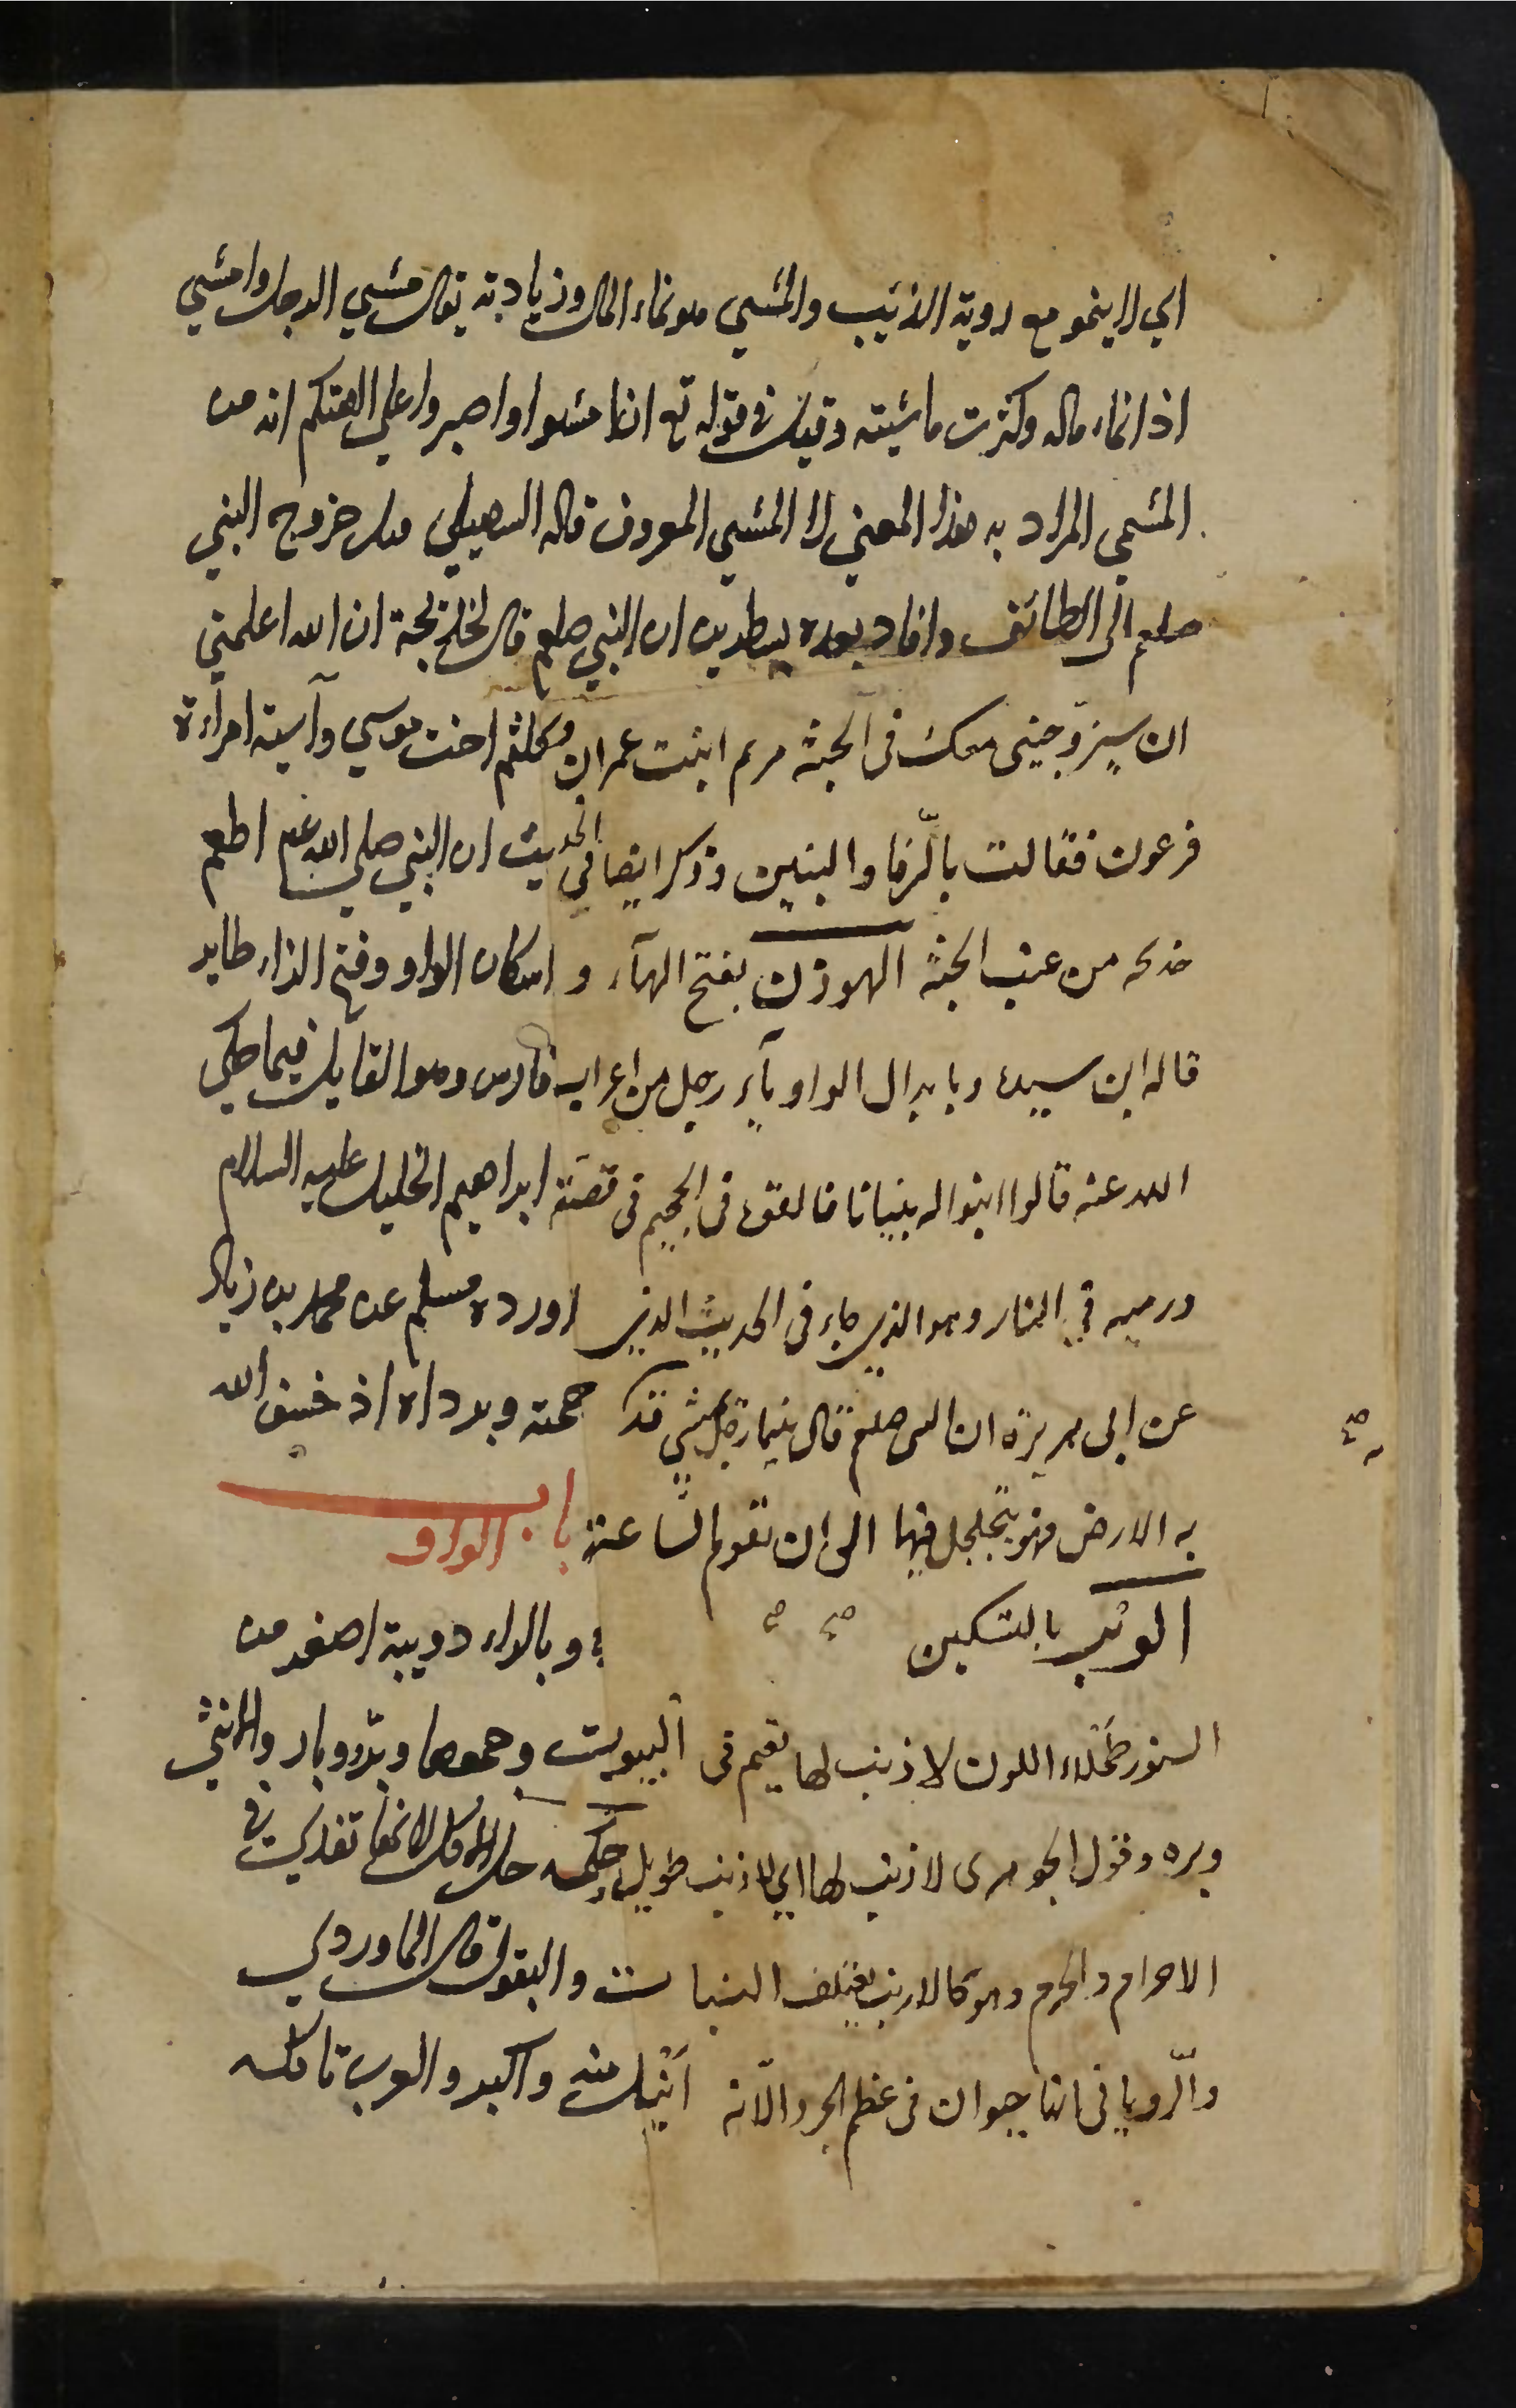 اي لا ينمو مع روية الذئيب والمشي هو نماء المال وزيادته يقال مشي الرجل وامشي
اذا نماء ماله وكثرت ماشيته وقيل في قوله تع ان امشوا واصبروا علي الهتكم انه من
المشي المراد به هذا المعني لا المشي المعروف قاله السهيلي قبل خروج النبي
صلعم الى الطائف وافاد بعده بسطرين ان النبي صلعم قال لخديجة ان الله اعلمني
ان سيزوّجني معك في الجنة مريم ابنت عمران وكلثم اخت موسي وآسية امراءة
فرعون فقالت بالّرفا والبنين وذكر ايضا في الحديث ان النبي صلي الله عم اطعم
خديجه من عنب الجنة الهوزن بفتح الهآء و اسكان الواو وفتح الزاء طاير
قاله ابن سيده وبابدال الواو يآء رجل من اعراب فارس وهو القايل فيما حكي
الله عنه قالوا ابنوا له بنيانا فالقوه في الجحيم في قصّة ابراهيم الخليل عليه السلام
ورميه في النار وهو الذي جاء في الحديث الذي اورده مسلم عن محمد بن زياد
عن ابي هريرة ان النبي صلعم قال بينما رجل يمشي قد جمته وبرداه اذ خسف الله
به الارض فهو يتجلجل فيها الي ان تقوم السّاعة باب الواو
الوبر بالتسكين وبالراء دويبة اصغر من
السنور طحلاء اللون لا ذنب لها تقيم في البيوت وجمعها وبّر وبار والانثي
وبره وقول الجوهري لا ذنب لها اي لا ذنب طويل حكمه حل الاكل لانها تفدي في
الاحرام والحرم وهو كالارنب يعتلف النبات والبقول قال الماوردي
والّروياني انها حيوان في عظم الجرذ الّا انه انبل منه واكبر والعرب تاكله